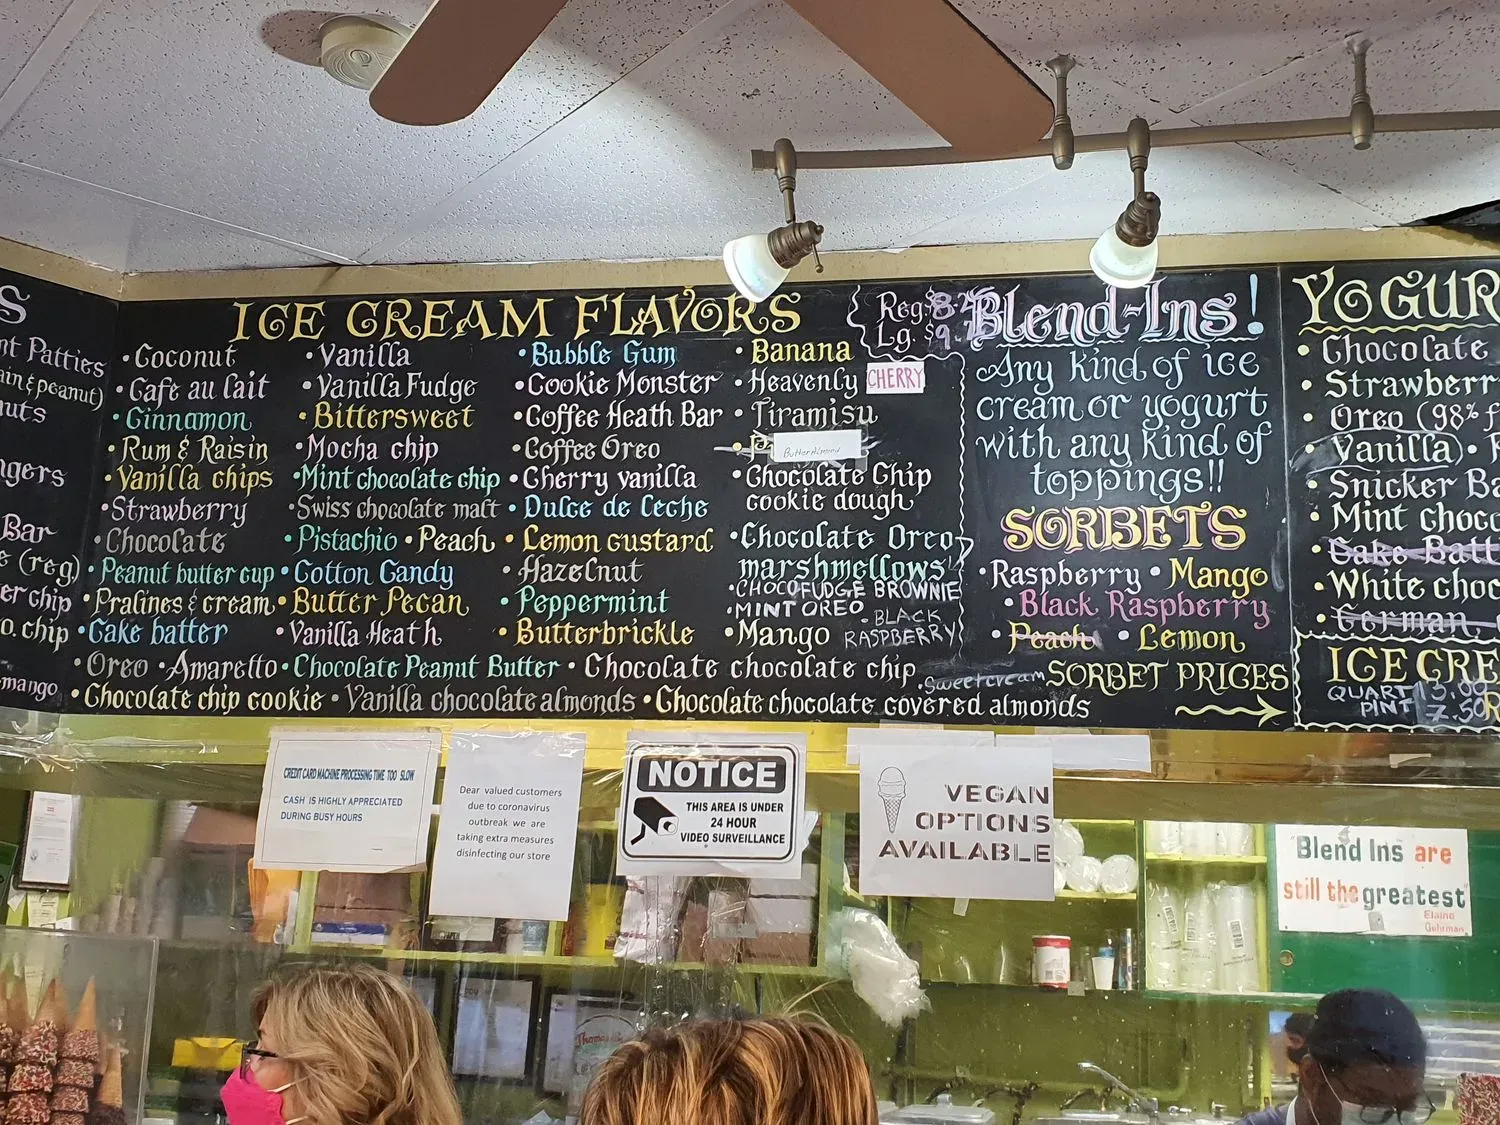 nt Patties
ain & peanut)
nuts
ngers
Bar
e (reg)
er chip
o. chip
-mango
ICE CREAM FLAVORS
• Coconut
• Cafe au lait
• Cinnamon
• Rum & Raisin
• Vanilla chips
• Strawberry
• Chocolate
• Peanut butter cup
• Pralines & cream
• Cake batter
• Vanilla
• Vanilla Fudge
• Bittersweet
• Mocha chip
• Mint chocolate chip
• Swiss chocolate malt
• Pistachio • Peach
• Cotton Candy
• Butter Pecan
• Vanilla Heath
• Bubble Gum
• Cookie Monster
• Coffee Heath Bar
• Coffee Oreo
• Cherry vanilla
• Dulce de Leche
• Lemon custard
• Hazelnut
• Peppermint
• Butterbrickle
• Banana
• Heavenly CHERRY
• Tiramisu
Butter Almond
• Chocolate Chip
cookie dough
• Chocolate Oreo
marshmellows
• CHOCO FUDGE BROWNIE
• MINT OREO
• BLACK
RASPBERRY
• Mango
• Oreo • Amaretto • Chocolate Peanut Butter • Chocolate chocolate chip
• Sweetcream
• Chocolate chip cookie • Vanilla chocolate almonds • Chocolate chocolate covered almonds
Reg. $8.
Lg. $9.
Blend-Ins!
Any kind of ice
cream or yogurt
with any kind of
toppings!!
SORBETS
• Raspberry • Mango
• Black Raspberry
• Peach • Lemon
SORBET PRICES
YOGUR
• Chocolate
• Strawberr
• Oreo (98% f
• Vanilla •
• Snicker Ba
• Mint choc
• Cake Batt
• White choc
• German,
ICE CRE
QUART 13.00
PINT 7.50
CREDIT CARD MACHINE PROCESSING TIME TOO SLOW
CASH IS HIGHLY APPRECIATED
DURING BUSY HOURS
Dear valued customers
due to coronavirus
outbreak we are
taking extra measures
disinfecting our store
NOTICE
THIS AREA IS UNDER
24 HOUR
VIDEO SURVEILLANCE
VEGAN
OPTIONS
AVAILABLE
"Blend Ins are
still the greatest"
Elaine
Gehrman